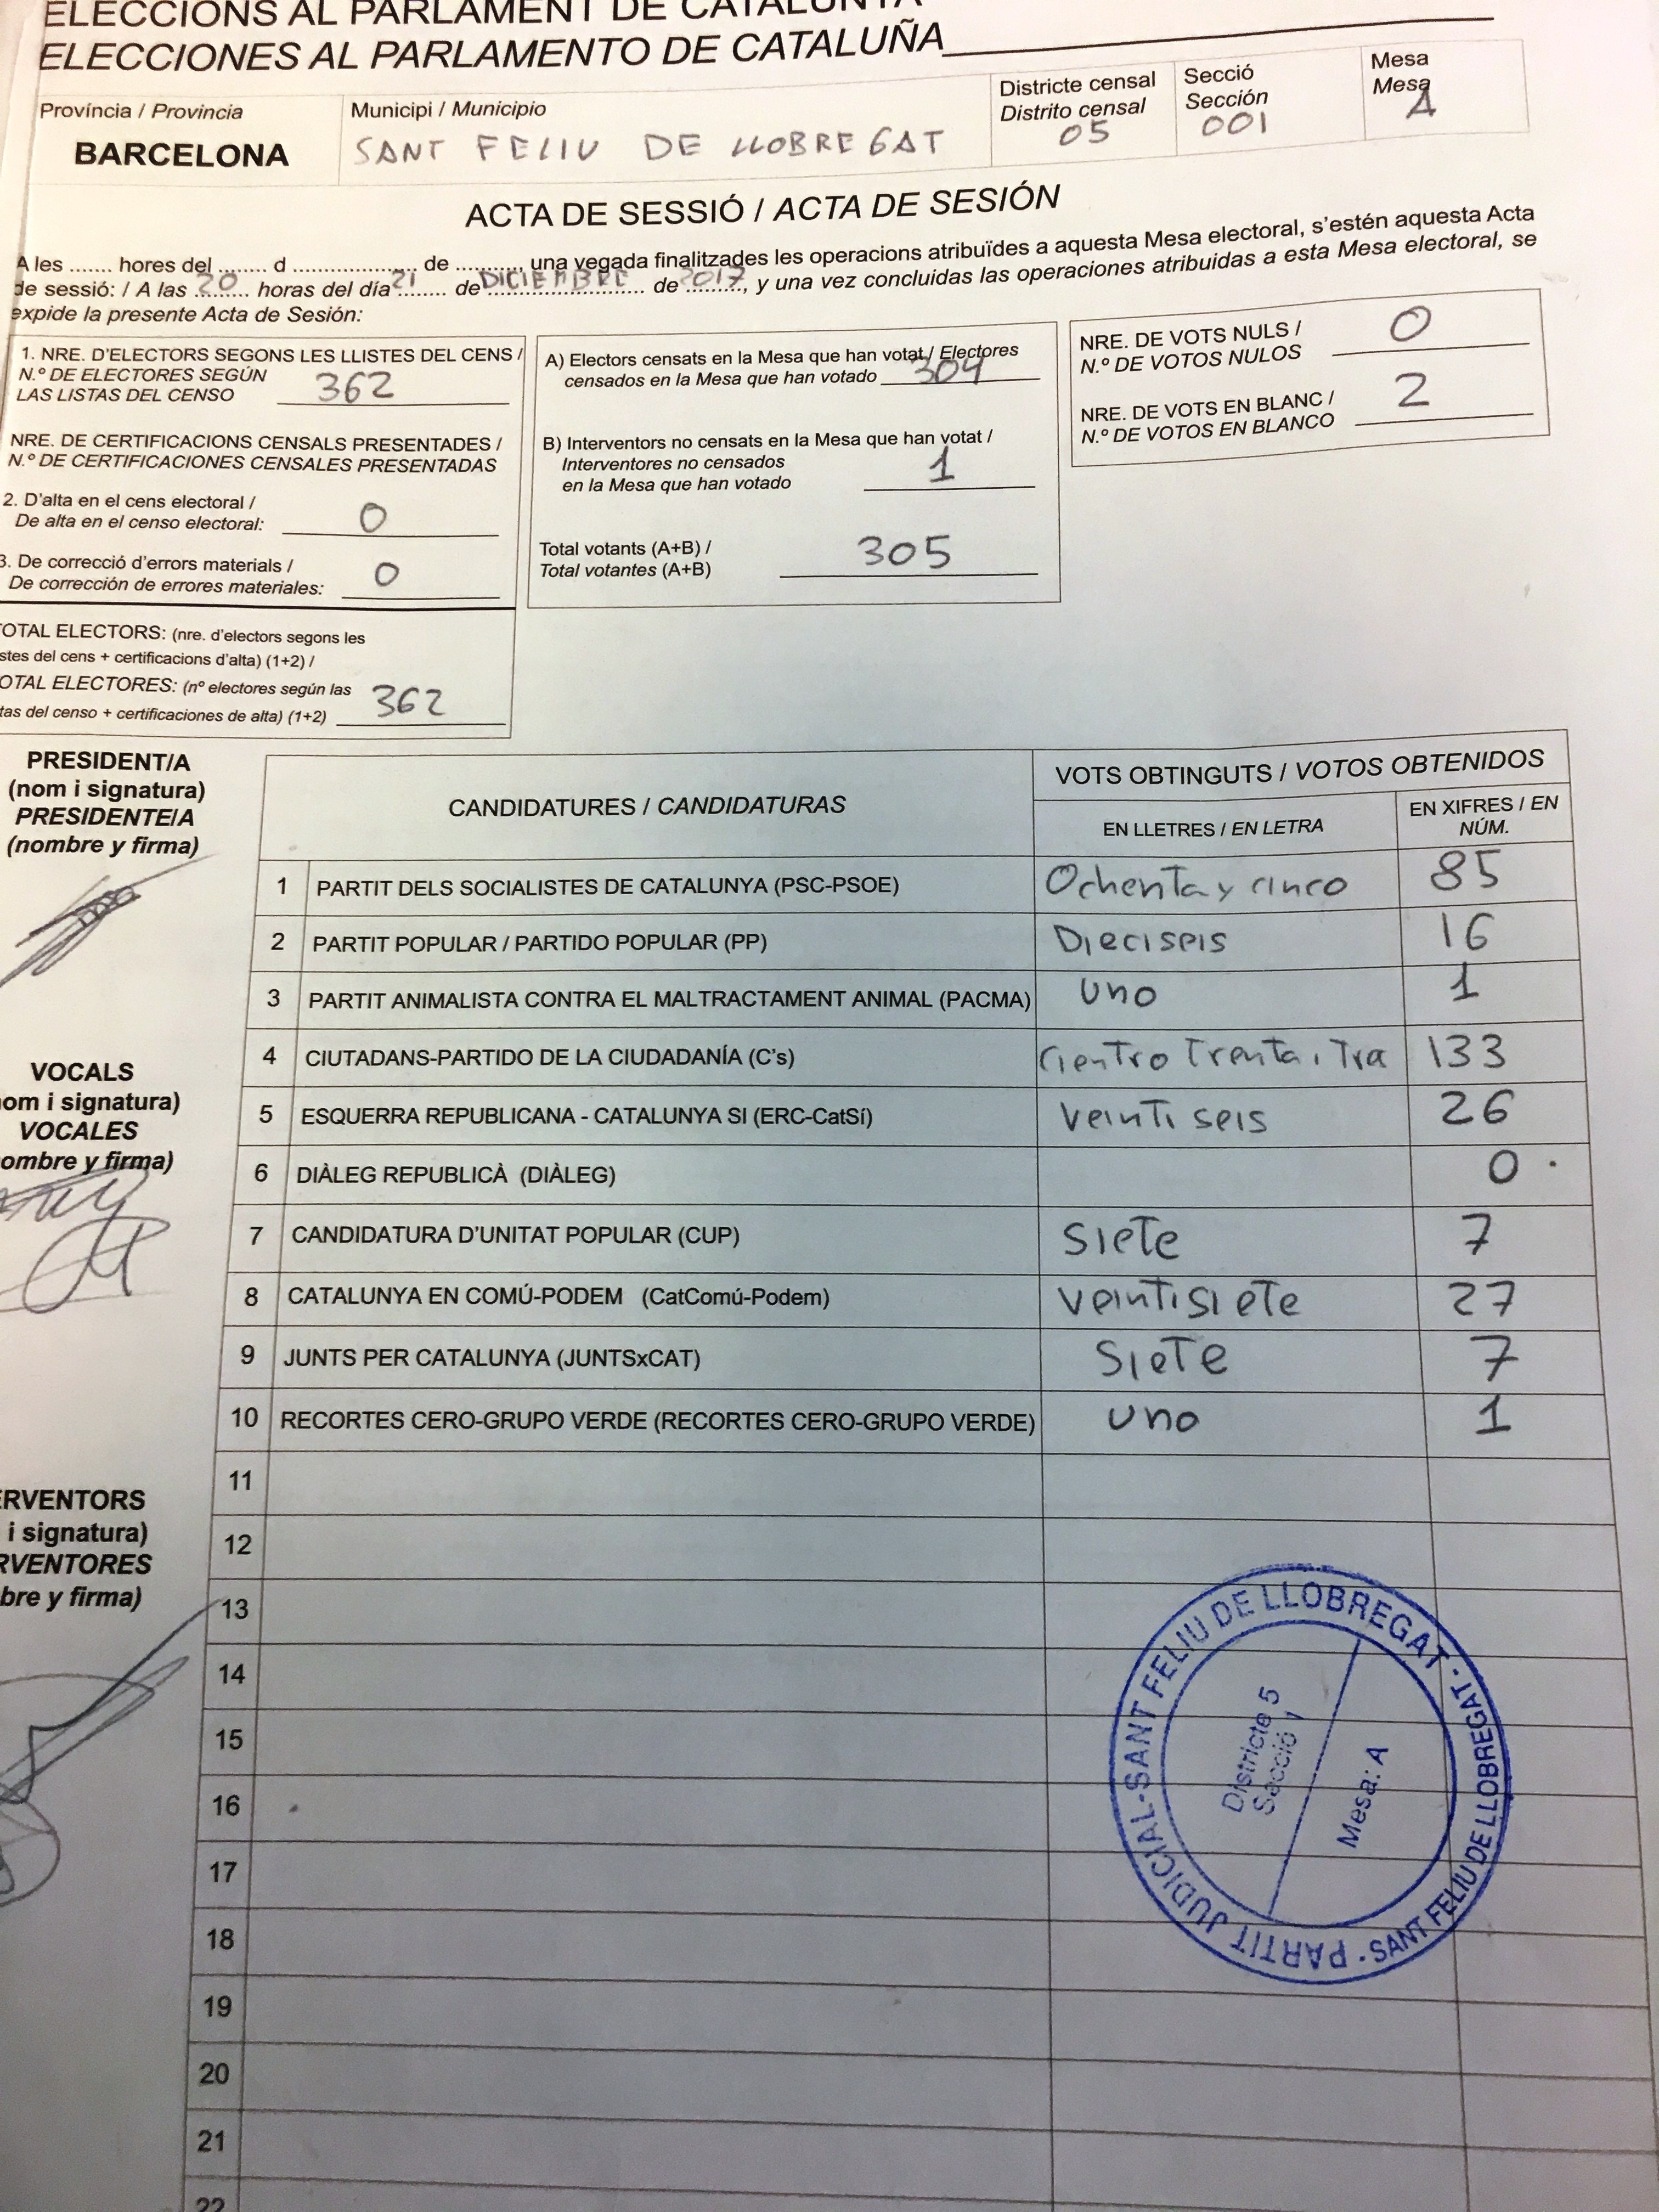 ELECCIONS AL PARLAMENT DE CATALUNYA
ELECCIONES AL PARLAMENTO DE CATALUÑA
Província / Provincia
BARCELONA
Municipi / Municipio
SANT FELIU DE LLOBREGAT
Districte censal
Distrito censal
05
Secció
Sección
001
Mesa
Mesa
A
ACTA DE SESSIÓ / ACTA DE SESIÓN
A les ....... hores del ........ d .................... de ........, una vegada finalitzades les operacions atribuïdes a aquesta Mesa electoral, s'estén aquesta Acta
de sessió: / A las 20 horas del día 21 de DICIEMBRE de 2017, y una vez concluidas las operaciones atribuidas a esta Mesa electoral, se
expide la presente Acta de Sesión:
1. NRE. D'ELECTORS SEGONS LES LLISTES DEL CENS /
N.º DE ELECTORES SEGÚN
LAS LISTAS DEL CENSO 362
NRE. DE CERTIFICACIONS CENSALS PRESENTADES /
N.º DE CERTIFICACIONES CENSALES PRESENTADAS
2. D'alta en el cens electoral /
De alta en el censo electoral: 0
3. De correcció d'errors materials /
De corrección de errores materiales: 0
TOTAL ELECTORS: (nre. d'electors segons les
stes del cens + certificacions d'alta) (1+2) /
OTAL ELECTORES: (nº electores según las
tas del censo + certificaciones de alta) (1+2) 362
A) Electors censats en la Mesa que han votat / Electores
censados en la Mesa que han votado 304
B) Interventors no censats en la Mesa que han votat /
Interventores no censados
en la Mesa que han votado 1
Total votants (A+B) /
Total votantes (A+B) 305
NRE. DE VOTS NULS /
N.º DE VOTOS NULOS 0
NRE. DE VOTS EN BLANC /
N.º DE VOTOS EN BLANCO 2
PRESIDENT/A
(nom i signatura)
PRESIDENTE/A
(nombre y firma)
VOCALS
om i signatura)
VOCALES
ombre y firma)
ERVENTORS
i signatura)
RVENTORES
bre y firma)
CANDIDATURES / CANDIDATURAS
VOTS OBTINGUTS / VOTOS OBTENIDOS
EN LLETRES / EN LETRA
EN XIFRES / EN
NÚM.
1 PARTIT DELS SOCIALISTES DE CATALUNYA (PSC-PSOE) Ochenta y cinco 85
2 PARTIT POPULAR / PARTIDO POPULAR (PP) Dieciseis 16
3 PARTIT ANIMALISTA CONTRA EL MALTRACTAMENT ANIMAL (PACMA) uno 1
4 CIUTADANS-PARTIDO DE LA CIUDADANÍA (C's) Cientro Trenta i Tra 133
5 ESQUERRA REPUBLICANA - CATALUNYA SI (ERC-CatSí) Veinti seis 26
6 DIÀLEG REPUBLICÀ (DIÀLEG) 0
7 CANDIDATURA D'UNITAT POPULAR (CUP) Siete 7
8 CATALUNYA EN COMÚ-PODEM (CatComú-Podem) veintisiete 27
9 JUNTS PER CATALUNYA (JUNTSxCAT) Siete 7
10 RECORTES CERO-GRUPO VERDE (RECORTES CERO-GRUPO VERDE) uno 1
11
12
13
14
15
16
17
18
19
20
21
22
PARTIT JUDICIAL-SANT FELIU DE LLOBREGAT · SANT FELIU DE LLOBREGAT ·
Districte 5
Secció 1
Mesa: A